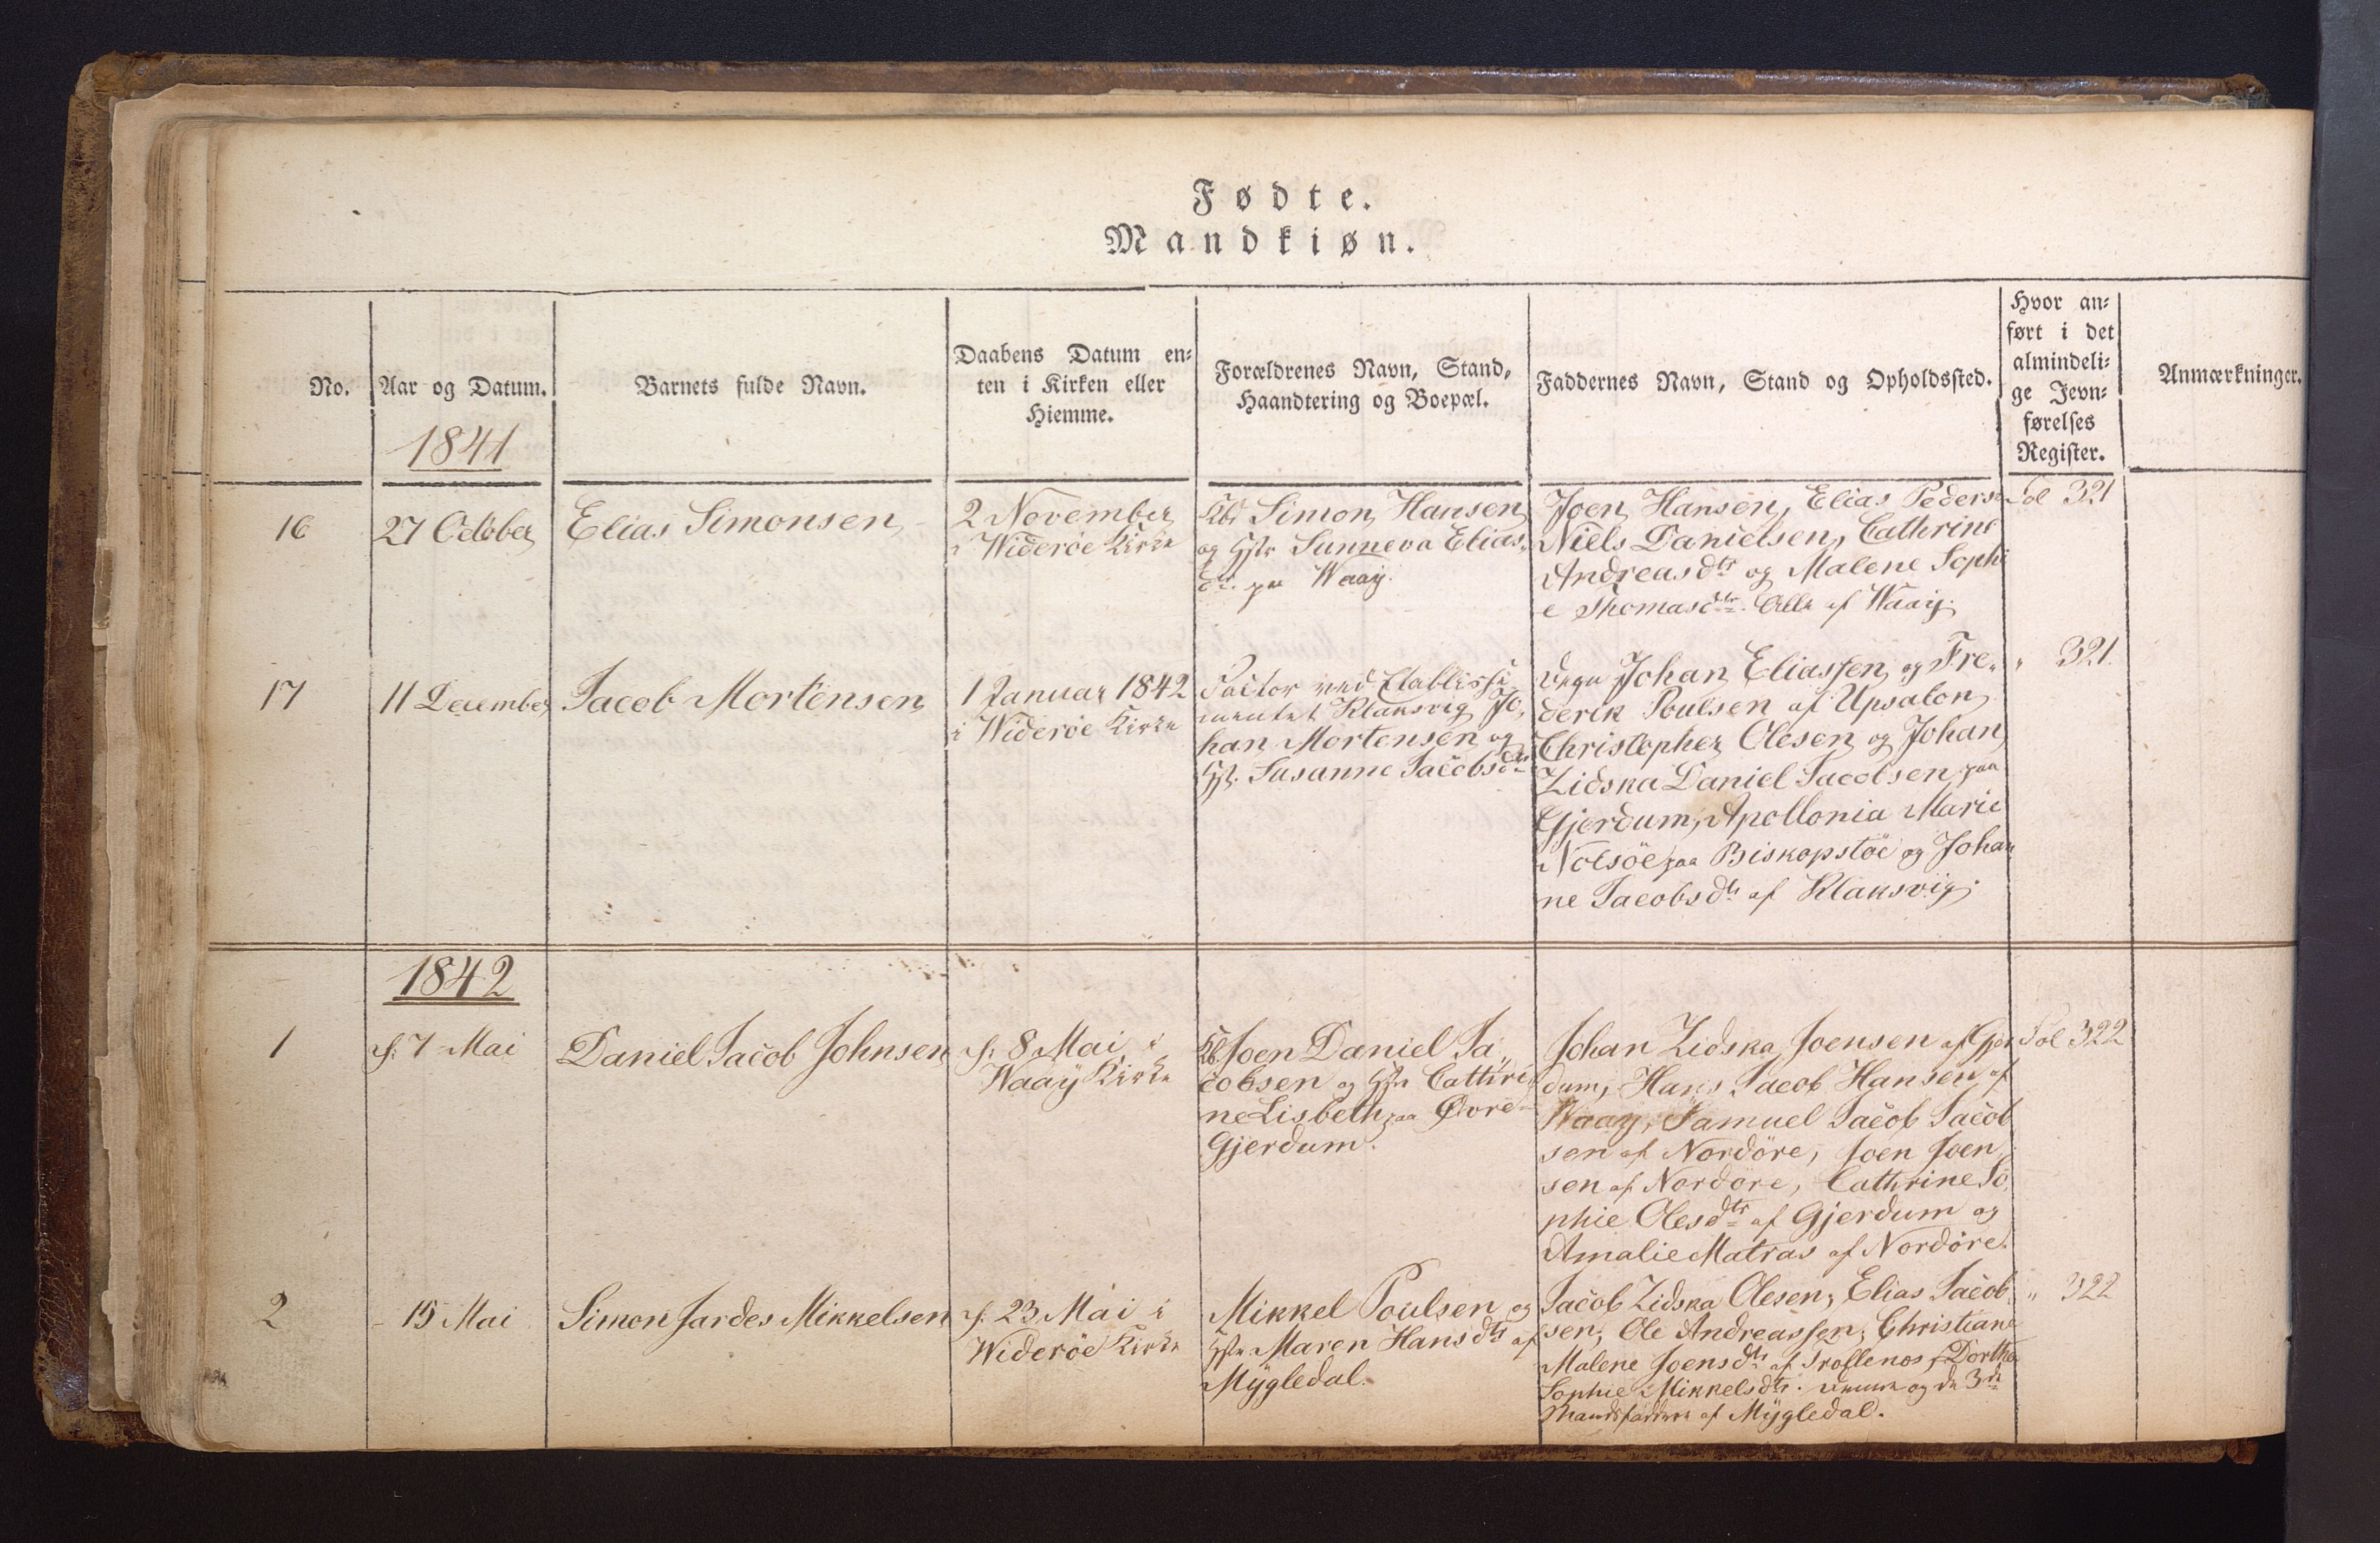 Fødte.
Mandkiøn.
No.
Aar og Datum.
Barnets fulde Navn.
Daabens Datum en-
ten i Kirken eller
Hiemme.
Forældrenes Navn, Stand,
Haandtering og Boepæl.
Faddernes Navn, Stand og Opholdssted.
Hvor an-
ført i det
almindeli-
ge Jevn-
førelses
Register.
Anmærkninger.
1841
16
27 October
Elias Simonsen
2 November
i Wideröe Kirke
Kbd Simon Hansen
og Hstr Sunneva Elias-
dtr. paa Waaÿ.
Joen Hansen, Elias Peders
Niels Danielsen, Cathrine
Andreasdtr og Malene Sophi
e Thomasdtr. Alle af Waaij.
Fol 321
17
11 December
Jacob Mortensen
1 Januar 1842
i Wideröe Kirke
Factor ved Etablisse
mentet Klaksvig Jo,
han Mortensen og
Hstr. Susanne Jacobsdtr
Johan Eliassen og Fre-
derik Poulsen af Upsalon,
Christopher Olesen og Johan
Zidska Daniel Jacobsen paa
Gjerdum, Apollonia Marie
Nolsöe paa Biskopstöe og Johan
ne Jacobsdtr af Klaksvig.
" 321.
1842
1
d. 7 Mai
Daniel Jacob Johnsen
d. 8 Mai i
Waaÿ Kirke
Kbd Joen Daniel Ja,,
cobsen og Hstr Cathri
ne Lisbeth paa Øvre-
Gjerdum.
Johan Zidska Joensen af Gjer
dum, Hans Jacob Hansen af
Waaÿ, Samuel Jacob Jacob
sen af Nordöre, Joen Joen
sen af Nordöre, Cathrine So,
phie Olesdtr af Gjerdum og
Amalie Matras af Nordöre.
Fol 322
2
- 15 Mai
Simon Jardes Mikkelsen
d. 23 Mai i
Wideröe Kirke
Mikkel Poulsen og
Hstr Maren Hansdtr af
Mÿgledal.
Jacob Zidska Olesen, Elias Jacob,
sen, Ole Andreassen, Christiane
Malene Joensdtr af Trollenæs, Dorthe
Sophie Mikkelsdtr. og de 3de
Mandsfaddere af Mÿgledal.
" 322